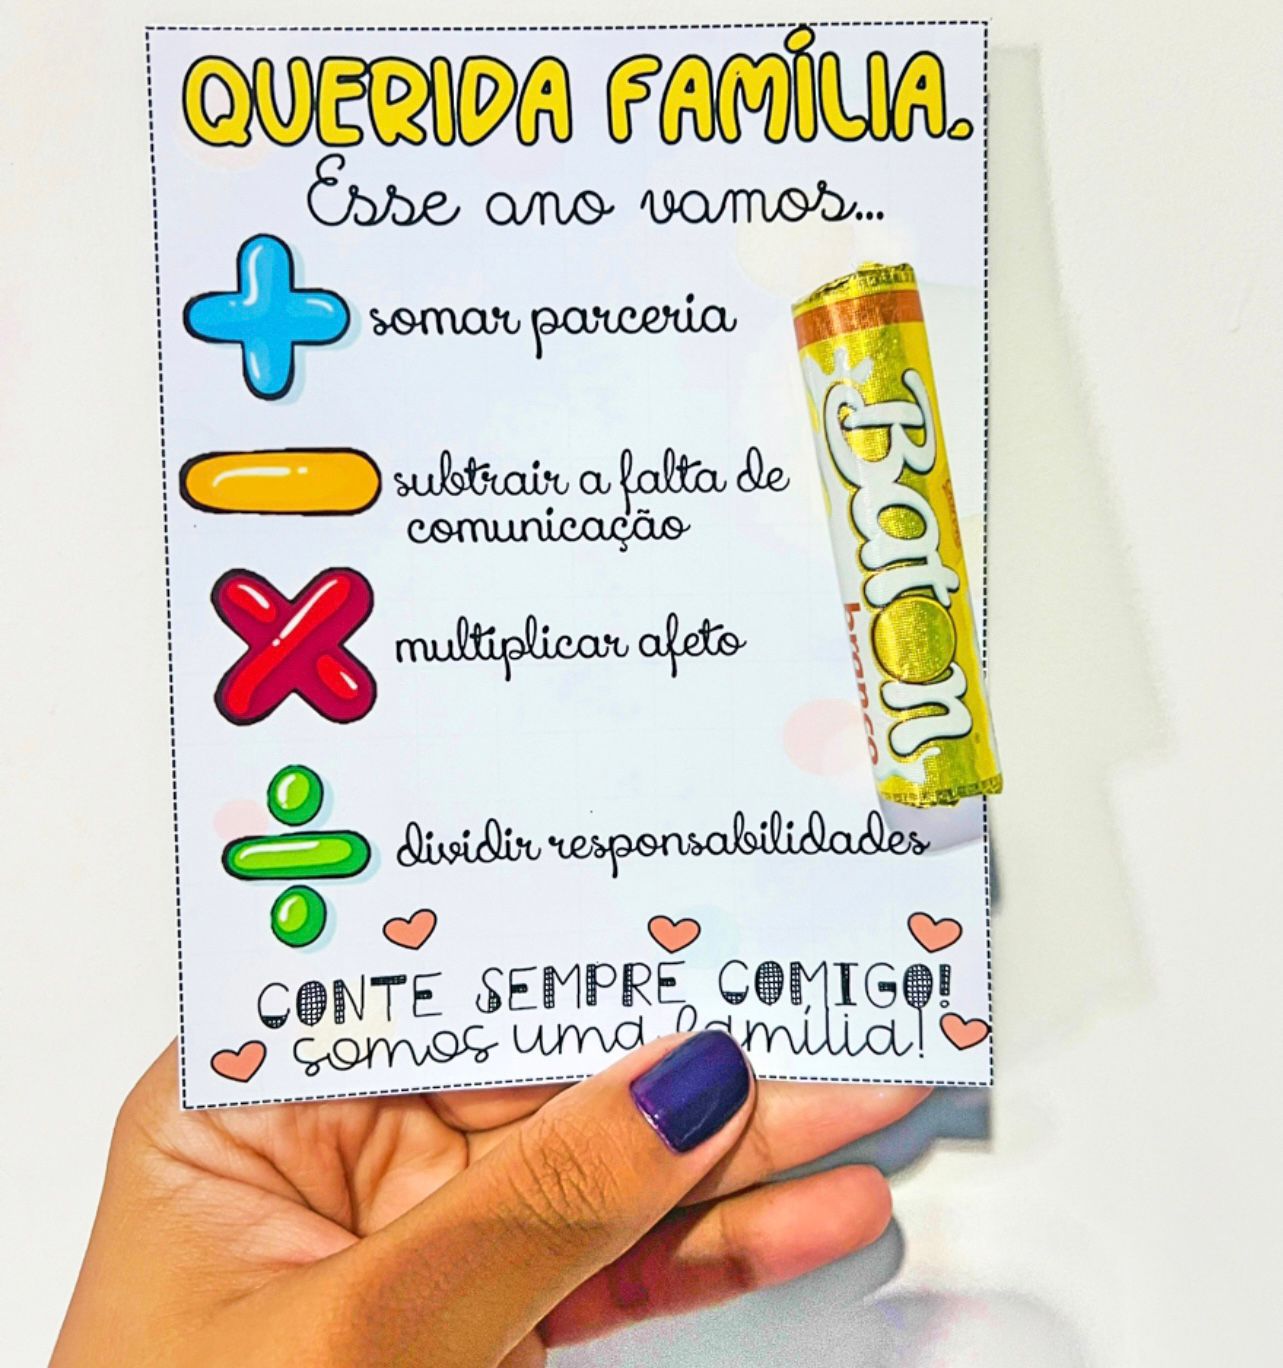 QUERIDA FAMÍLIA.
Esse ano vamos...
somar parceria
subtrair a falta de
comunicação
multiplicar afeto
dividir responsabilidades
CONTE SEMPRE COMIGO!
somos uma família!
Baton
branco